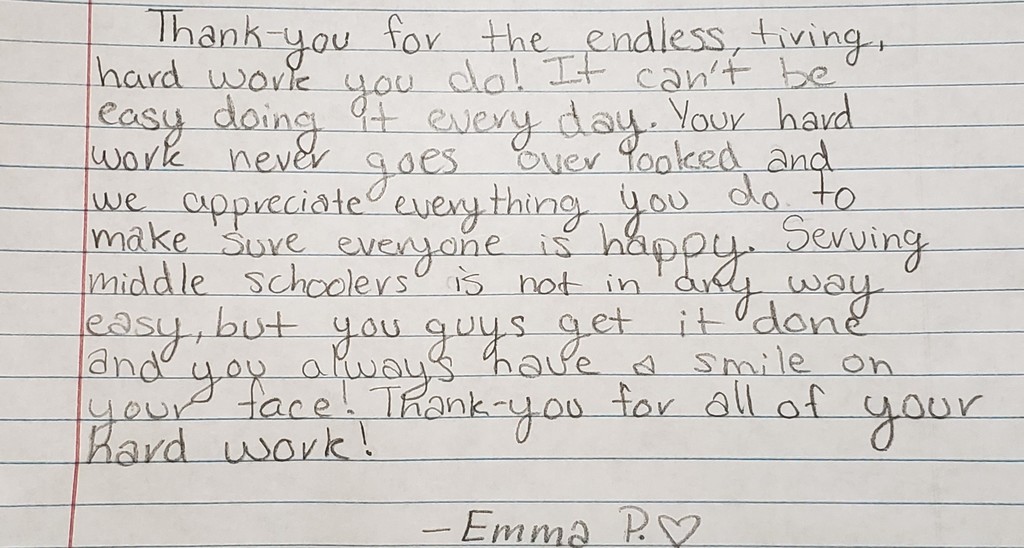 Thank-you for the endless, tiring,
hard work you do! It can't be
easy doing it every day. Your hard
work never goes over looked and
we appreciate everything you do to
make sure everyone is happy. Serving
middle schoolers is not in any way
easy, but you guys get it done
and you always have a smile on
your face! Thank-you for all of your
hard work!
- Emma P.♡